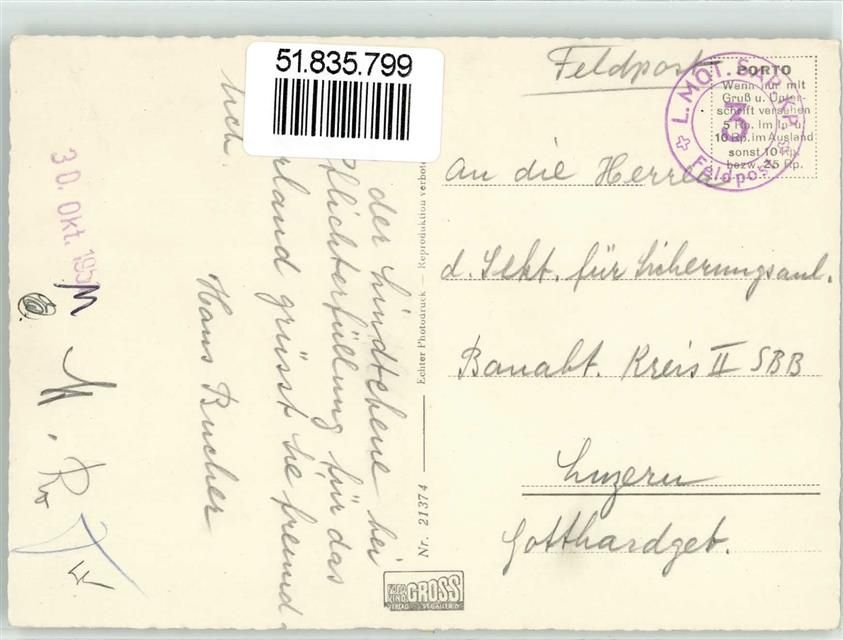 51.835.799
Feldpost
PORTO
Wenn nur mit
Gruß u. Unter-
schrift versehen
5 Rp. im In- u.
10 Rp. im Ausland
sonst 10 Rp.
bezw. 25 Rp.
L. MOT. SAP. KP.
3
Feldpost
An die Herren
d. Sekt. für Sicherungsanl.
Bauabt. Kreis II SBB
Luzern
Gotthardgeb.
der Lindtehene bei
flichterfüllung für das
rland grüsst Sie freund
lich.
Hans Bucher
30. Okt. 195
Nr. 21374
Echter Photodruck — Reproduktion verbote
FOTO
GROSS
VERLAG ST. GALLEN